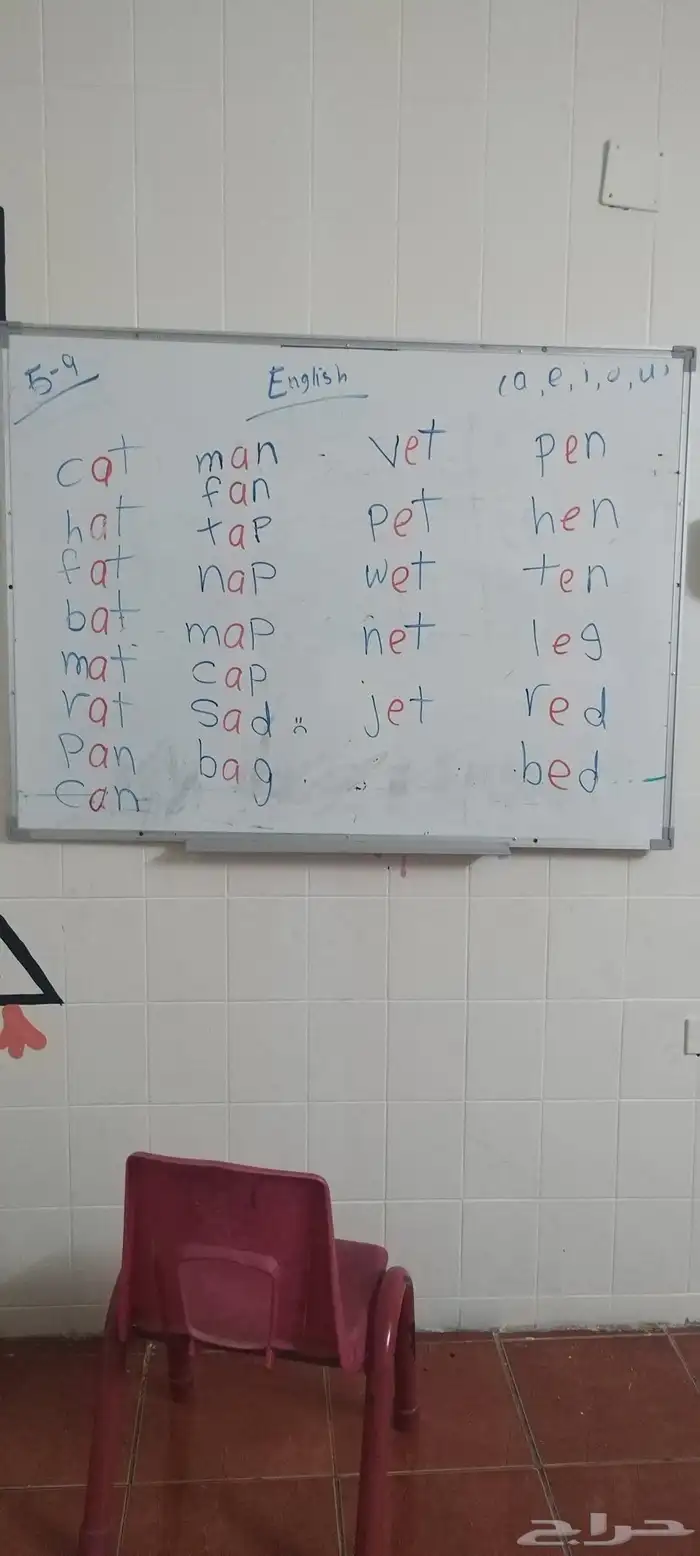 5-9 English (a, e, i, o, u)
cat man vet pen
fan
hat tap pet hen
fat nap wet ten
bat map net leg
mat cap
rat sad jet red
pan bag bed
can
حراج